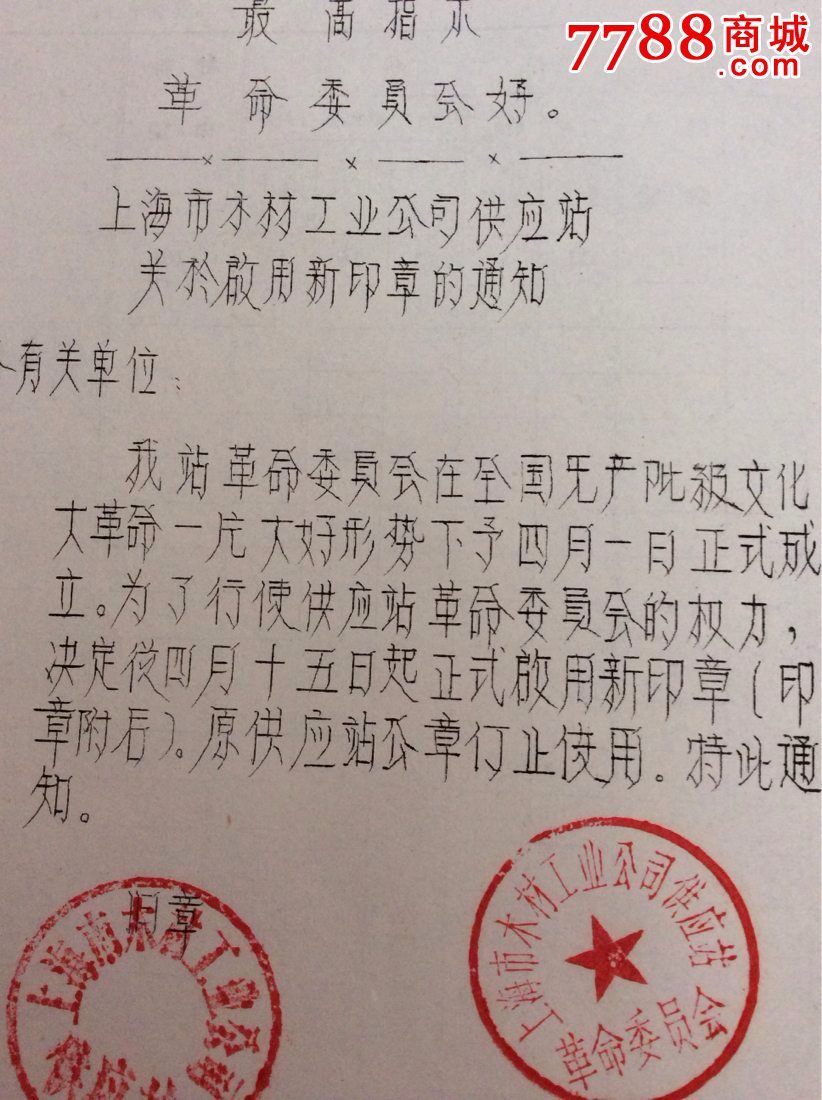 7788商城
.com
最高指示
革命委员会好。
上海市木材工业公司供应站
关於啟用新印章的通知
有关单位：
我站革命委員会在全国无产阶级文化
大革命一片大好形势下予四月一日正式成
立。为了行使供应站革命委員会的权力，
决定從四月十五日起正式啟用新印章(印
章附后)。原供应站公章仃止使用。特此通
知。
旧章
上海市木材工业公司
供应站
上海市木材工业公司供应站
革命委员会